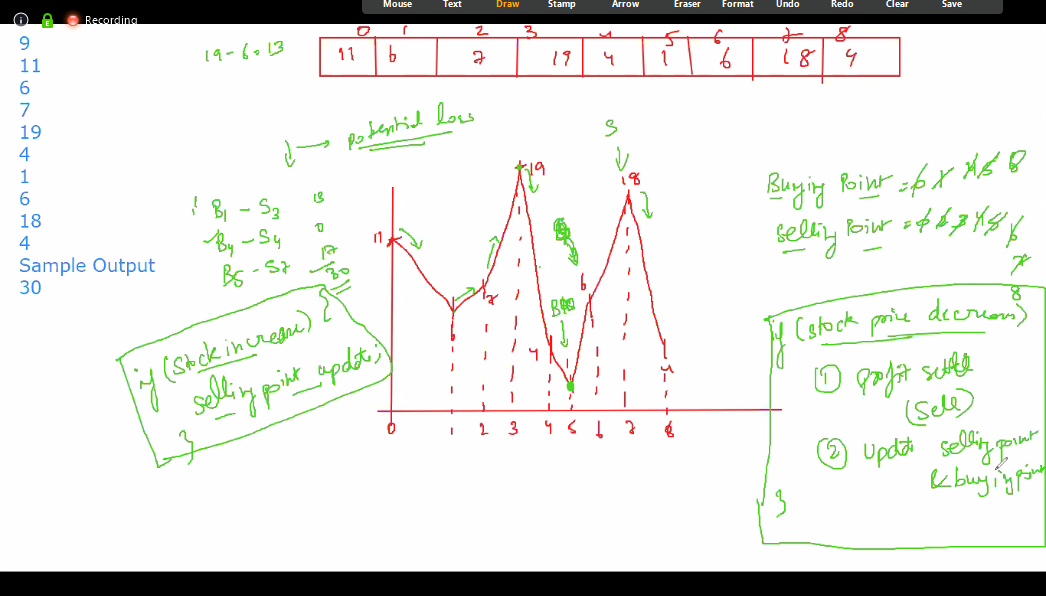 Mouse Text Draw Stamp Arrow Eraser Format Undo Redo Clear Save
Recording
9
11
6
7
19
4
1
6
18
4
Sample Output
30
19-6=13
0 1 2 3 4 5 6 7 8
11 6 7 19 4 1 6 18 4
↓→ potential loss
B1 - S3 13
B4 - S4 0
B5 - S7 17
30
if (stock increase) {
selling point update;
}
S
19
18
11
7
6
4
4
0 1 2 3 4 5 6 7 8
Buying Point = 0 1 4 5 8
selling Point = 0 1 2 3 4 5 6
7
8
if (stock price decreases)
① profit settle
(Sell)
② update selling point
& buying point
}